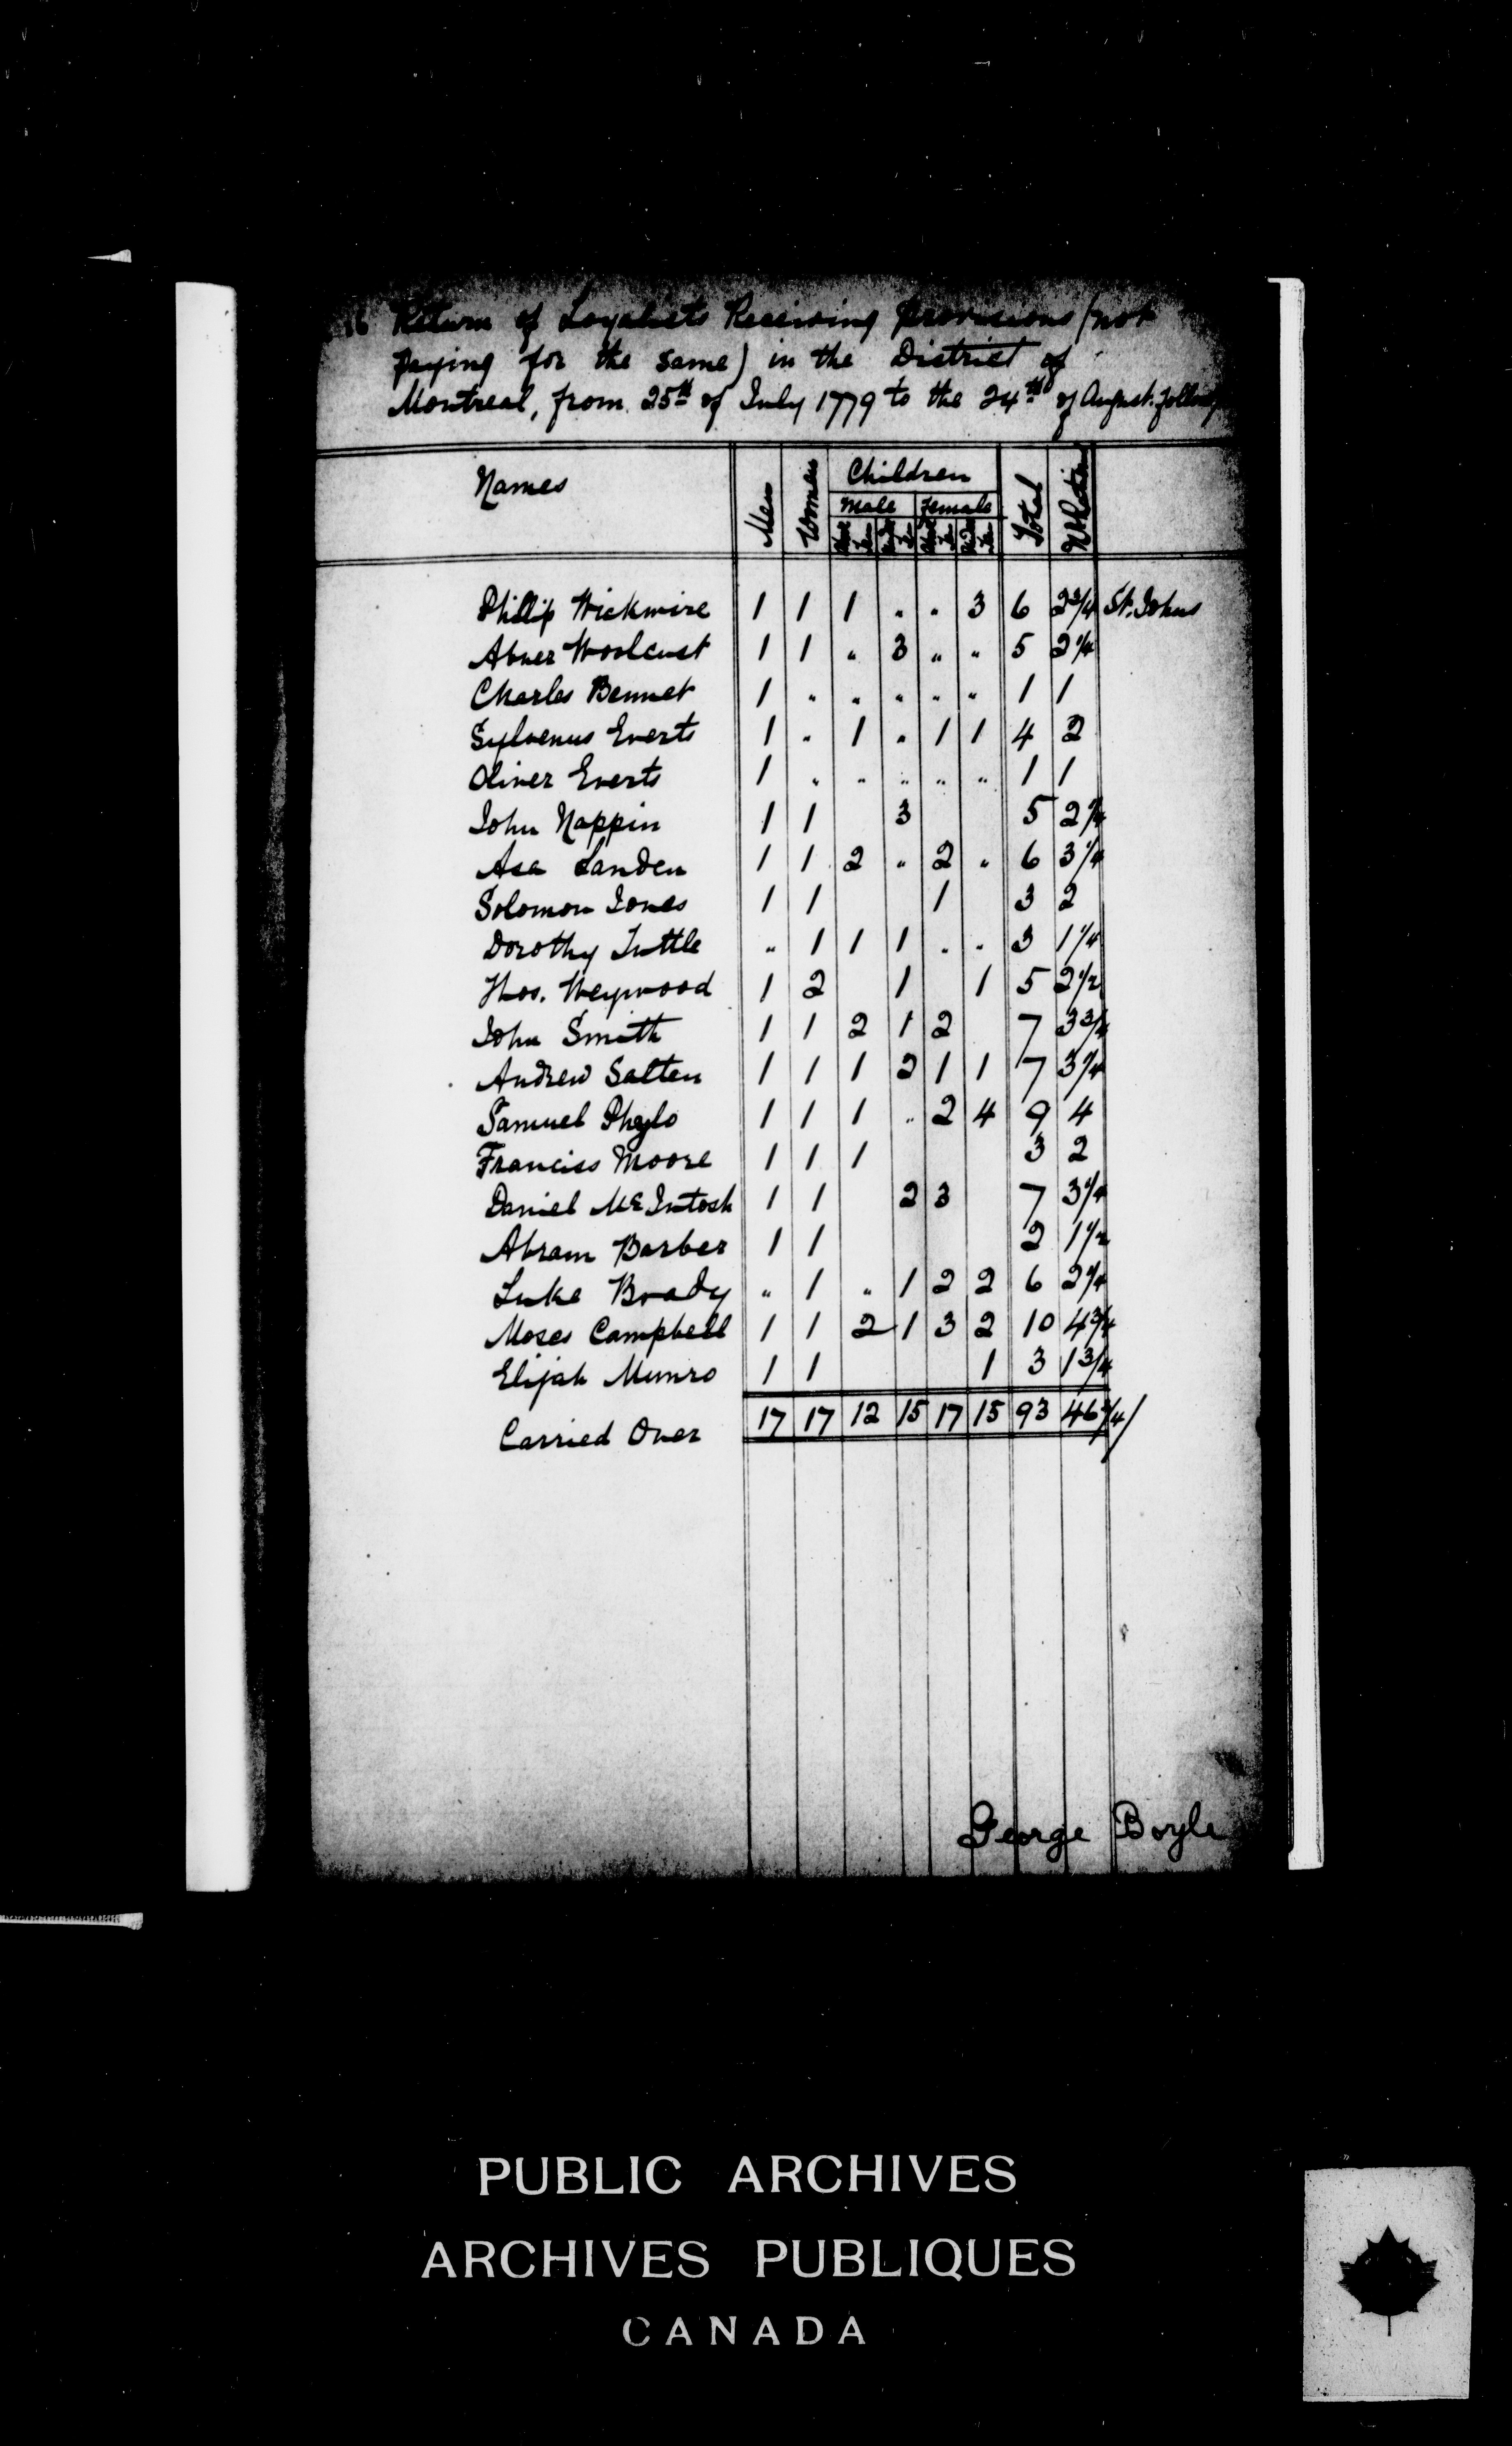 16 Return of Loyalists Receiving Provisions (not
paying for the same) in the District of
Montreal, from 25th of July 1779 to the 24th of August following
Names Men Women Children Total No Rations
Male Female
Phillip Wickwire 1 1 1 " " 3 6 2 3/4 St. Johns
Abner Woolcust 1 1 " 3 " " 5 2 1/4
Charles Bennet 1 " " " " " 1 1
Sylvenus Everts 1 " 1 " 1 1 4 2
Oliver Everts 1 " " " " " 1 1
John Nappin 1 1 3 5 2 1/4
Asa Landen 1 1 2 " 2 " 6 3 1/4
Solomon Jones 1 1 1 3 2
Dorothy Tuttle " 1 1 1 " " 3 1 1/4
Thos. Weywood 1 2 1 1 5 2 1/2
John Smith 1 1 2 1 2 7 3 3/4
Andrew Salten 1 1 1 2 1 1 7 3 1/4
Samuel Phylo 1 1 1 " 2 4 9 4
Franciss Moore 1 1 1 3 2
Daniel McIntosh 1 1 2 3 7 3 1/4
Abram Barber 1 1 2 1 1/2
Luke Brady " 1 " 1 2 2 6 2 1/4
Moses Campbell 1 1 2 1 3 2 10 4 3/4
Elijah Munro 1 1 1 3 1 3/4
Carried Over 17 17 12 15 17 15 93 46 3/4/
George Boyle
PUBLIC ARCHIVES
ARCHIVES PUBLIQUES
CANADA